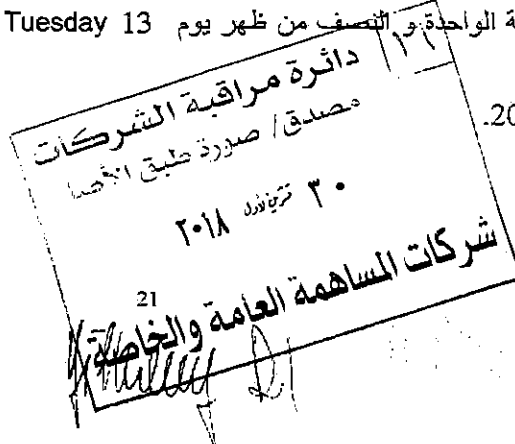 ة الواحدة و النصف من ظهر يوم Tuesday 13
20.
(١٦)
دائرة مراقبة الشركات
مصدق / صورة طبق الأصل
٣٠ تشرين أول ٢٠١٨
21
شركات المساهمة العامة والخاصة